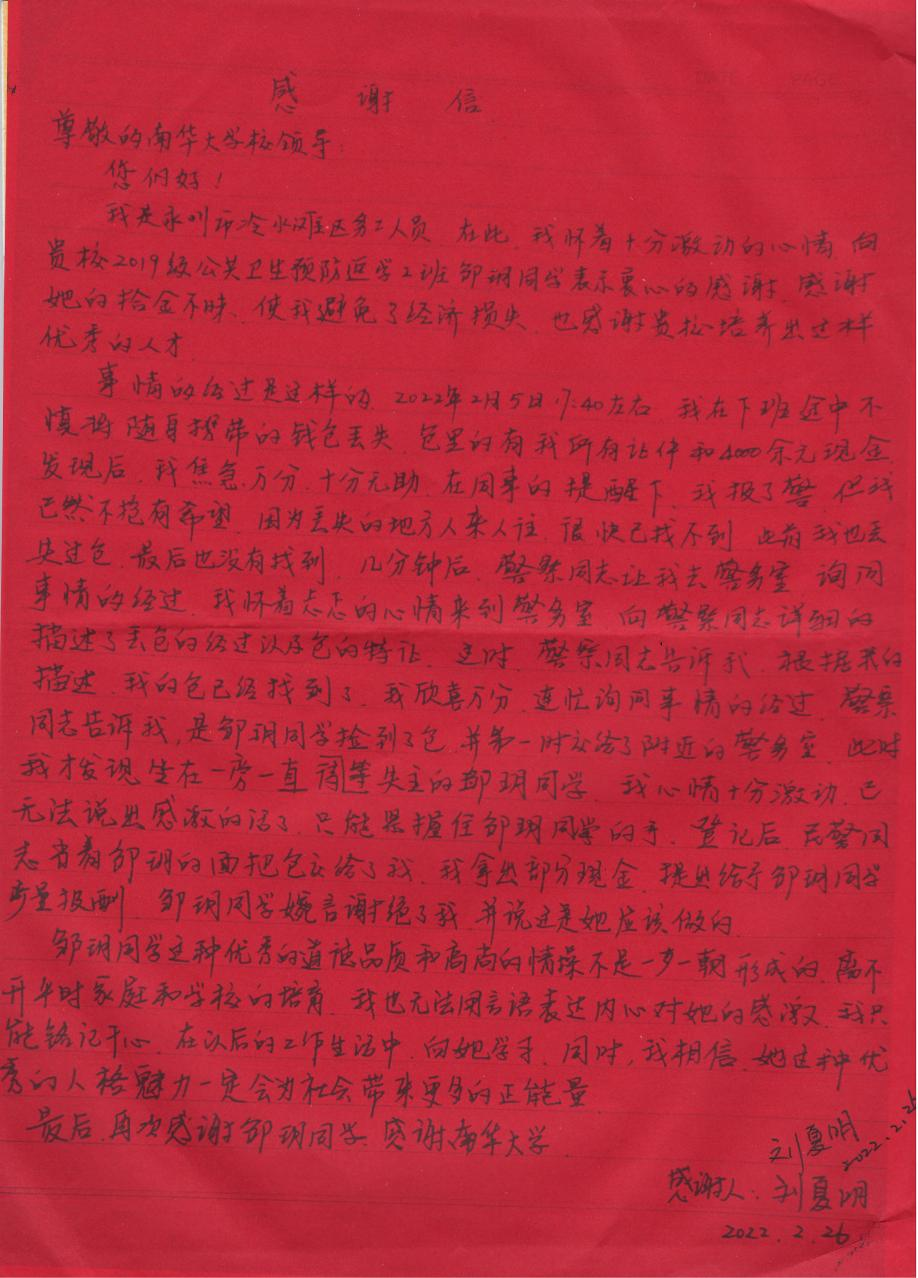 DATE PAGE
感 谢 信
尊敬的南华大学校领导:
您们好!
我是永州市冷水滩区务工人员 在此 我怀着十分激动的心情 向
贵校2019级公共卫生预防医学2班邹玥同学表示衷心的感谢 感谢
她的拾金不昧、使我避免了经济损失 也感谢贵校培养出这样
优秀的人才
事情的经过是这样的 2022年2月5日17:40左右 我在下班途中不
慎将随身携带的钱包丢失 包里的有我所有证件和4000余元现金
发现后、我焦急万分、十分无助 在同事的提醒下、我报了警 但我
已然不抱有希望 因为丢失的地方人来人往 很快已找不到 此前我也丢
失过包 最后也没有找到 几分钟后、警察同志让我去警务室 询问
事情的经过 我怀着忐忑的心情来到警务室 向警察同志详细的
描述了丢包的经过以及包的特征 这时 警察同志告诉我 根据我的
描述、我的包已经找到了 我欣喜万分 连忙询问事情的经过 警察
同志告诉我,是邹玥同学捡到了包 并第一时交给了附近的警务室 此时
我才发现坐在一旁一直等失主的邹玥同学 我心情十分激动 已
无法说出感激的话了 只能紧握住邹玥同学的手 登记后 民警同
志当着邹玥的面把包交给了我 我拿出部分现金 提出给予邹玥同学
报酬 邹玥同学婉言谢绝了我 并说这是她应该做的
邹玥同学这种优秀的道德品质和高尚的情操不是一步一朝形成的 离不
开平时家庭和学校的培育 我也无法用言语表达内心对她的感激 我只
能铭记于心 在以后的工作生活中 向她学习 同时,我相信 她这种优
秀的人格魅力一定会为社会带来更多的正能量
最后 再次感谢邹玥同学 感谢南华大学
刘夏明
2022.2.26
感谢人:刘夏明
2022.2.26